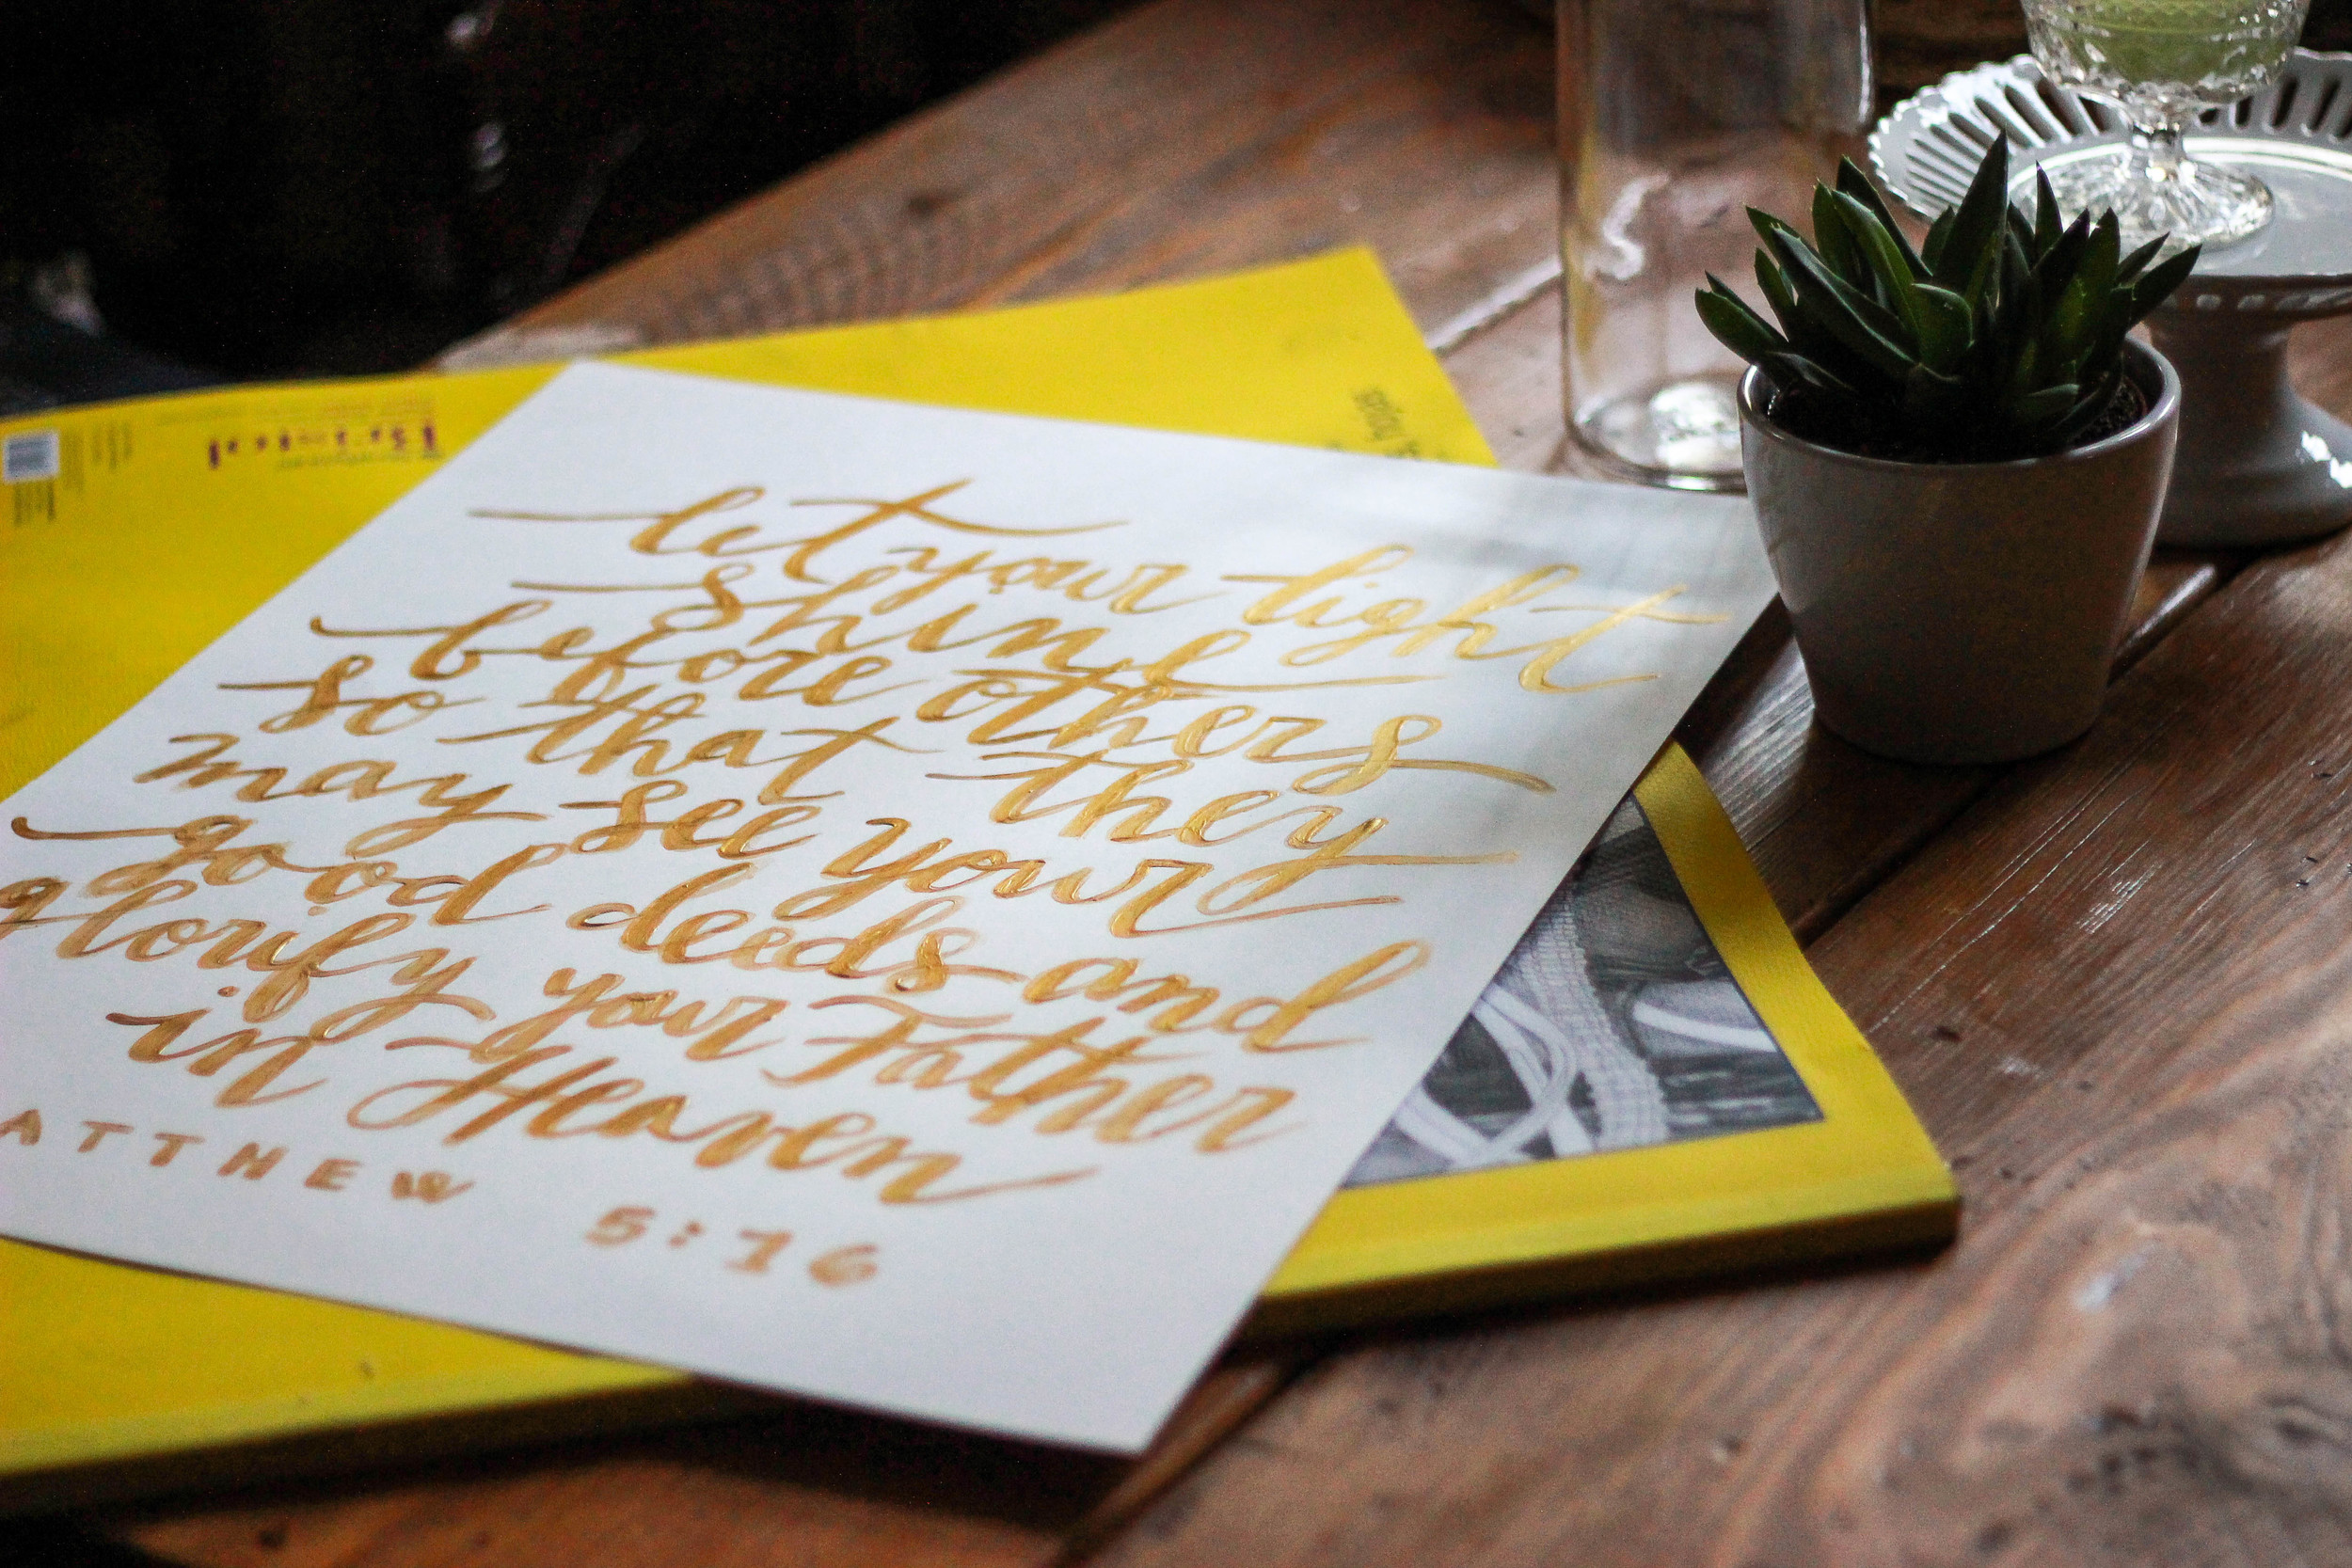 let your light
shine
before others
so that they
may see your
good deeds and
glorify your Father
in Heaven
ATTHEW 5:16
Bristol